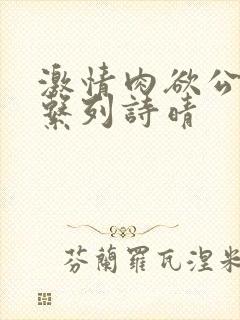 激情肉欲公
繫列詩晴
芬蘭羅瓦涅米